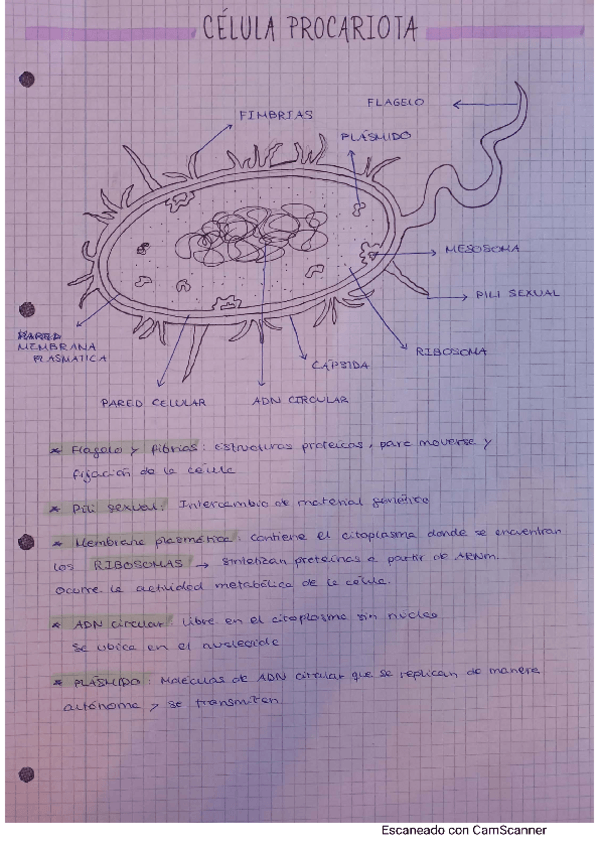 CÉLULA PROCARIOTA
FIMBRIAS
FLAGELO
PLÁSMIDO
MESOSOMA
PILI SEXUAL
RIBOSOMA
CÁPSIDA
ADN CIRCULAR
PARED CELULAR
PARED
MEMBRANA
PLASMATICA
* Flagelo y fibrias: estructuras proteicas, para moverse y
fijación de la célula
* Pili sexual: Intercambio de material genético
* Membrana plasmática: contiene el citoplasma donde se encuentran
los RIBOSOMAS → sintetizan proteínas a partir de ARNm.
Ocurre la actividad metabólica de la célula.
* ADN circular: libre en el citoplasma sin núcleo
Se ubica en el nucleoide
* PLÁSMIDO: Moléculas de ADN circular que se replican de manera
autónoma y se transmiten
Escaneado con CamScanner